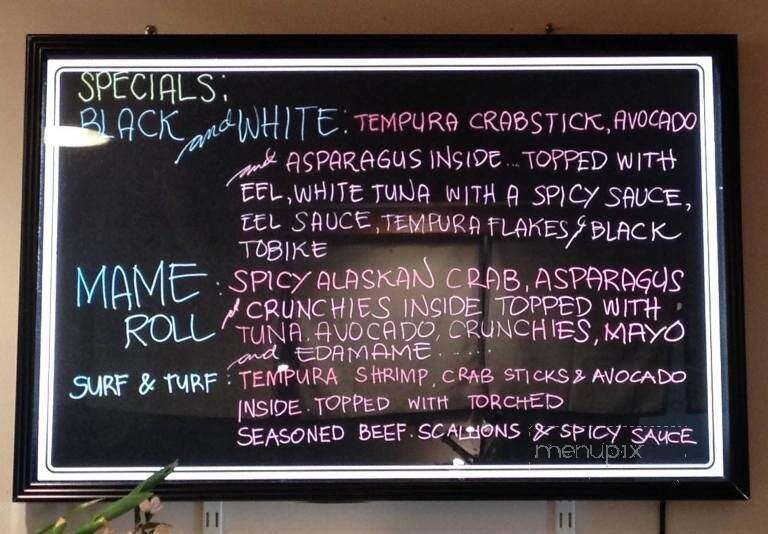 SPECIALS:
BLACK and WHITE: TEMPURA CRABSTICK, AVOCADO
and ASPARAGUS INSIDE... TOPPED WITH
EEL, WHITE TUNA WITH A SPICY SAUCE,
EEL SAUCE, TEMPURA FLAKES & BLACK
TOBIKE
MAME : SPICY ALASKAN CRAB, ASPARAGUS
& CRUNCHIES INSIDE TOPPED WITH
ROLL TUNA, AVOCADO, CRUNCHIES, MAYO
and EDAMAME......
SURF & TURF : TEMPURA SHRIMP, CRAB STICKS & AVOCADO
INSIDE. TOPPED WITH TORCHED
SEASONED BEEF. SCALLIONS & SPICY SAUCE
menupix